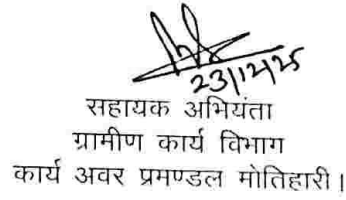 23/12/25
सहायक अभियंता
ग्रामीण कार्य विभाग
कार्य अवर प्रमण्डल मोतिहारी।